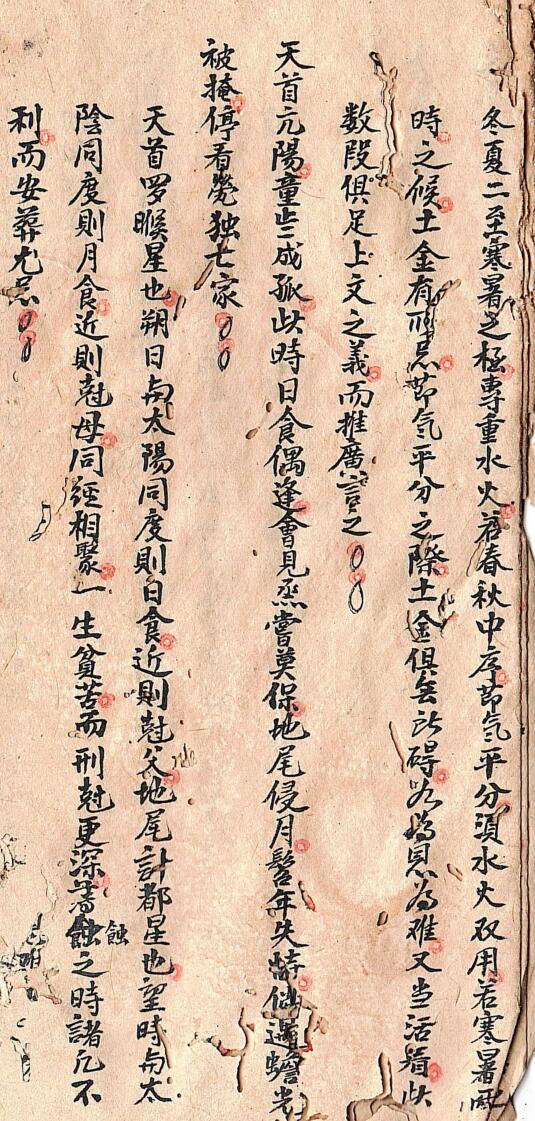 冬夏二至寒暑之極専重水火若春秋中序節气平分湏水火双用若寒暑
時之候土金有所忌節气平分之際土金俱無所碍为恩为难又当活看此
数段俱足上文之義而推廣言之
天首亢陽童齿成孤此時日食偶逢會見烝嘗莫保地尾侵月髫年失恃倘遇蟾光
被掩停看煢独亡家
天首罗睺星也朔日与太陽同度則日食近則尅父地尾計都星也望時与太
陰同度則月食近則尅母同經相聚一生貧苦而刑尅更深薄蝕蝕之時諸凡不
利而安葬尤忌